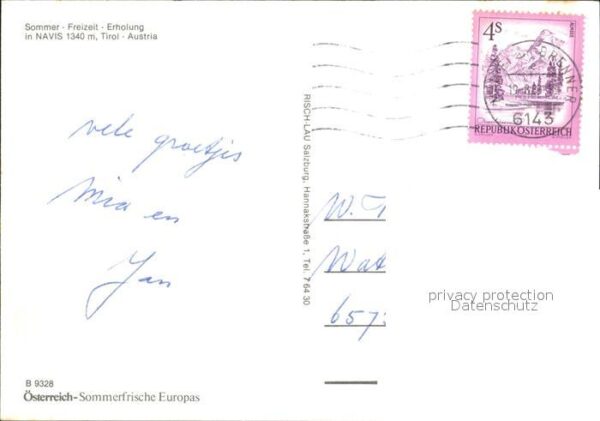 Sommer - Freizeit - Erholung
in NAVIS 1340 m, Tirol - Austria
4S
ALMSEE
BRENNER
6143
REPUBLIK ÖSTERREICH
vele groetjes
Mia en
Jan
RISCH-LAU Salzburg, Hannakstraße 1, Tel. 7 64 30
W.
Wat
657
privacy protection
Datenschutz
B 9328
Österreich-Sommerfrische Europas